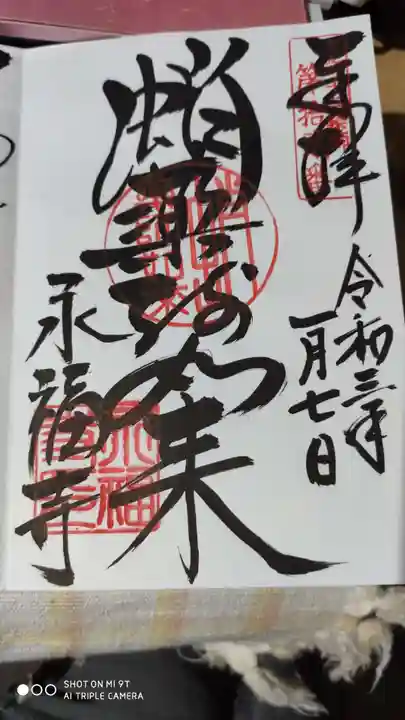 奉拝
令和三年
一月七日
蛸薬師如来
永福寺
SHOT ON MI 9T
AI TRIPLE CAMERA